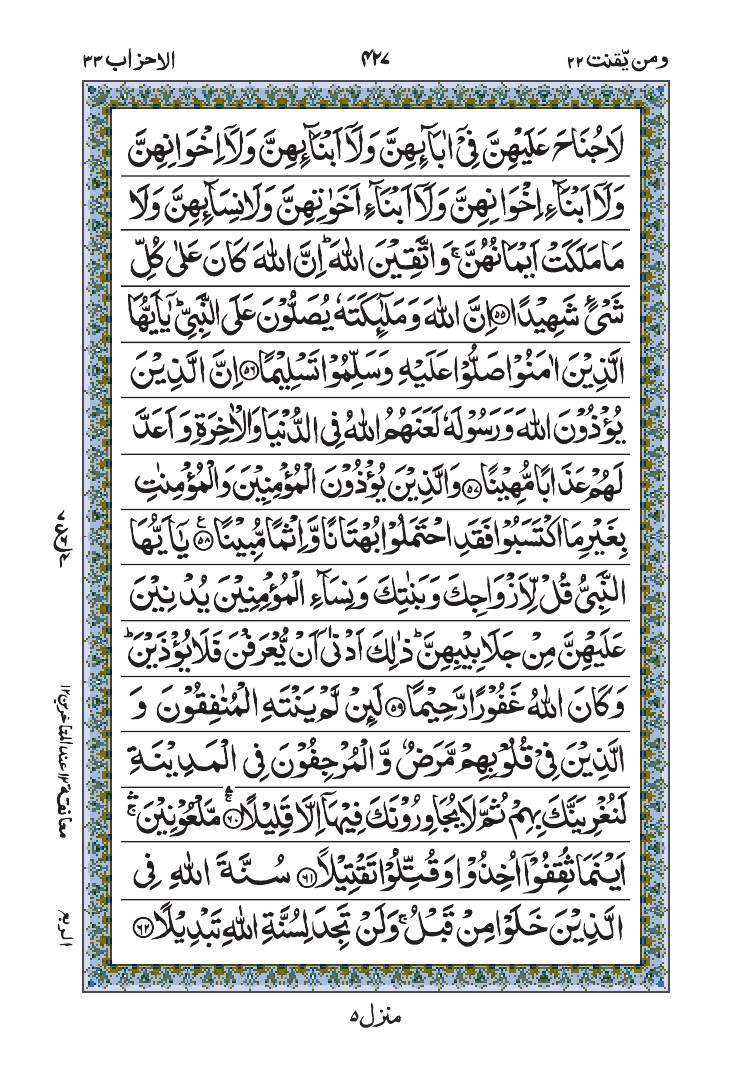 ومن یّقنت ٢٢
٤٢٧
الاحزاب ٣٣
لَا جُنَاحَ عَلَیْهِنَّ فِیْۤ اٰبَآىِٕهِنَّ وَلَاۤ اَبْنَآىِٕهِنَّ وَلَاۤ اِخْوَانِهِنَّ
وَلَاۤ اَبْنَآءِ اِخْوَانِهِنَّ وَلَاۤ اَبْنَآءِ اَخَوٰتِهِنَّ وَلَا نِسَآىِٕهِنَّ وَلَا
مَا مَلَكَتْ اَیْمَانُهُنَّ ۚ وَاتَّقِیْنَ اللّٰهَ ؕ اِنَّ اللّٰهَ كَانَ عَلٰی كُلِّ
شَیْءٍ شَهِیْدًا ﴿٥٥﴾ اِنَّ اللّٰهَ وَمَلٰٓىِٕكَتَهٗ یُصَلُّوْنَ عَلَی النَّبِیِّ ؕ یٰۤاَیُّهَا
الَّذِیْنَ اٰمَنُوْا صَلُّوْا عَلَیْهِ وَسَلِّمُوْا تَسْلِیْمًا ﴿٥٦﴾ اِنَّ الَّذِیْنَ
یُؤْذُوْنَ اللّٰهَ وَرَسُوْلَهٗ لَعَنَهُمُ اللّٰهُ فِی الدُّنْیَا وَالْاٰخِرَةِ وَاَعَدَّ
لَهُمْ عَذَابًا مُّهِیْنًا ﴿٥٧﴾ وَالَّذِیْنَ یُؤْذُوْنَ الْمُؤْمِنِیْنَ وَالْمُؤْمِنٰتِ
بِغَیْرِ مَا اكْتَسَبُوْا فَقَدِ احْتَمَلُوْا بُهْتَانًا وَّاِثْمًا مُّبِیْنًا ﴿٥٨﴾ یٰۤاَیُّهَا
النَّبِیُّ قُلْ لِّاَزْوَاجِكَ وَبَنٰتِكَ وَنِسَآءِ الْمُؤْمِنِیْنَ یُدْنِیْنَ
عَلَیْهِنَّ مِنْ جَلَابِیْبِهِنَّ ؕ ذٰلِكَ اَدْنٰۤی اَنْ یُّعْرَفْنَ فَلَا یُؤْذَیْنَ ؕ
وَكَانَ اللّٰهُ غَفُوْرًا رَّحِیْمًا ﴿٥٩﴾ لَىِٕنْ لَّمْ یَنْتَهِ الْمُنٰفِقُوْنَ وَ
الَّذِیْنَ فِیْ قُلُوْبِهِمْ مَّرَضٌ وَّالْمُرْجِفُوْنَ فِی الْمَدِیْنَةِ
لَنُغْرِیَنَّكَ بِهِمْ ثُمَّ لَا یُجَاوِرُوْنَكَ فِیْهَاۤ اِلَّا قَلِیْلًا ﴿٦٠﴾ مَّلْعُوْنِیْنَ ۛ
اَیْنَمَا ثُقِفُوْۤا اُخِذُوْا وَقُتِّلُوْا تَقْتِیْلًا ﴿٦١﴾ سُنَّةَ اللّٰهِ فِی
الَّذِیْنَ خَلَوْا مِنْ قَبْلُ ۚ وَلَنْ تَجِدَ لِسُنَّةِ اللّٰهِ تَبْدِیْلًا ﴿٦٢﴾
معانقة ١٢ عند المتاخرین ١٢
الربع
منزل ٥